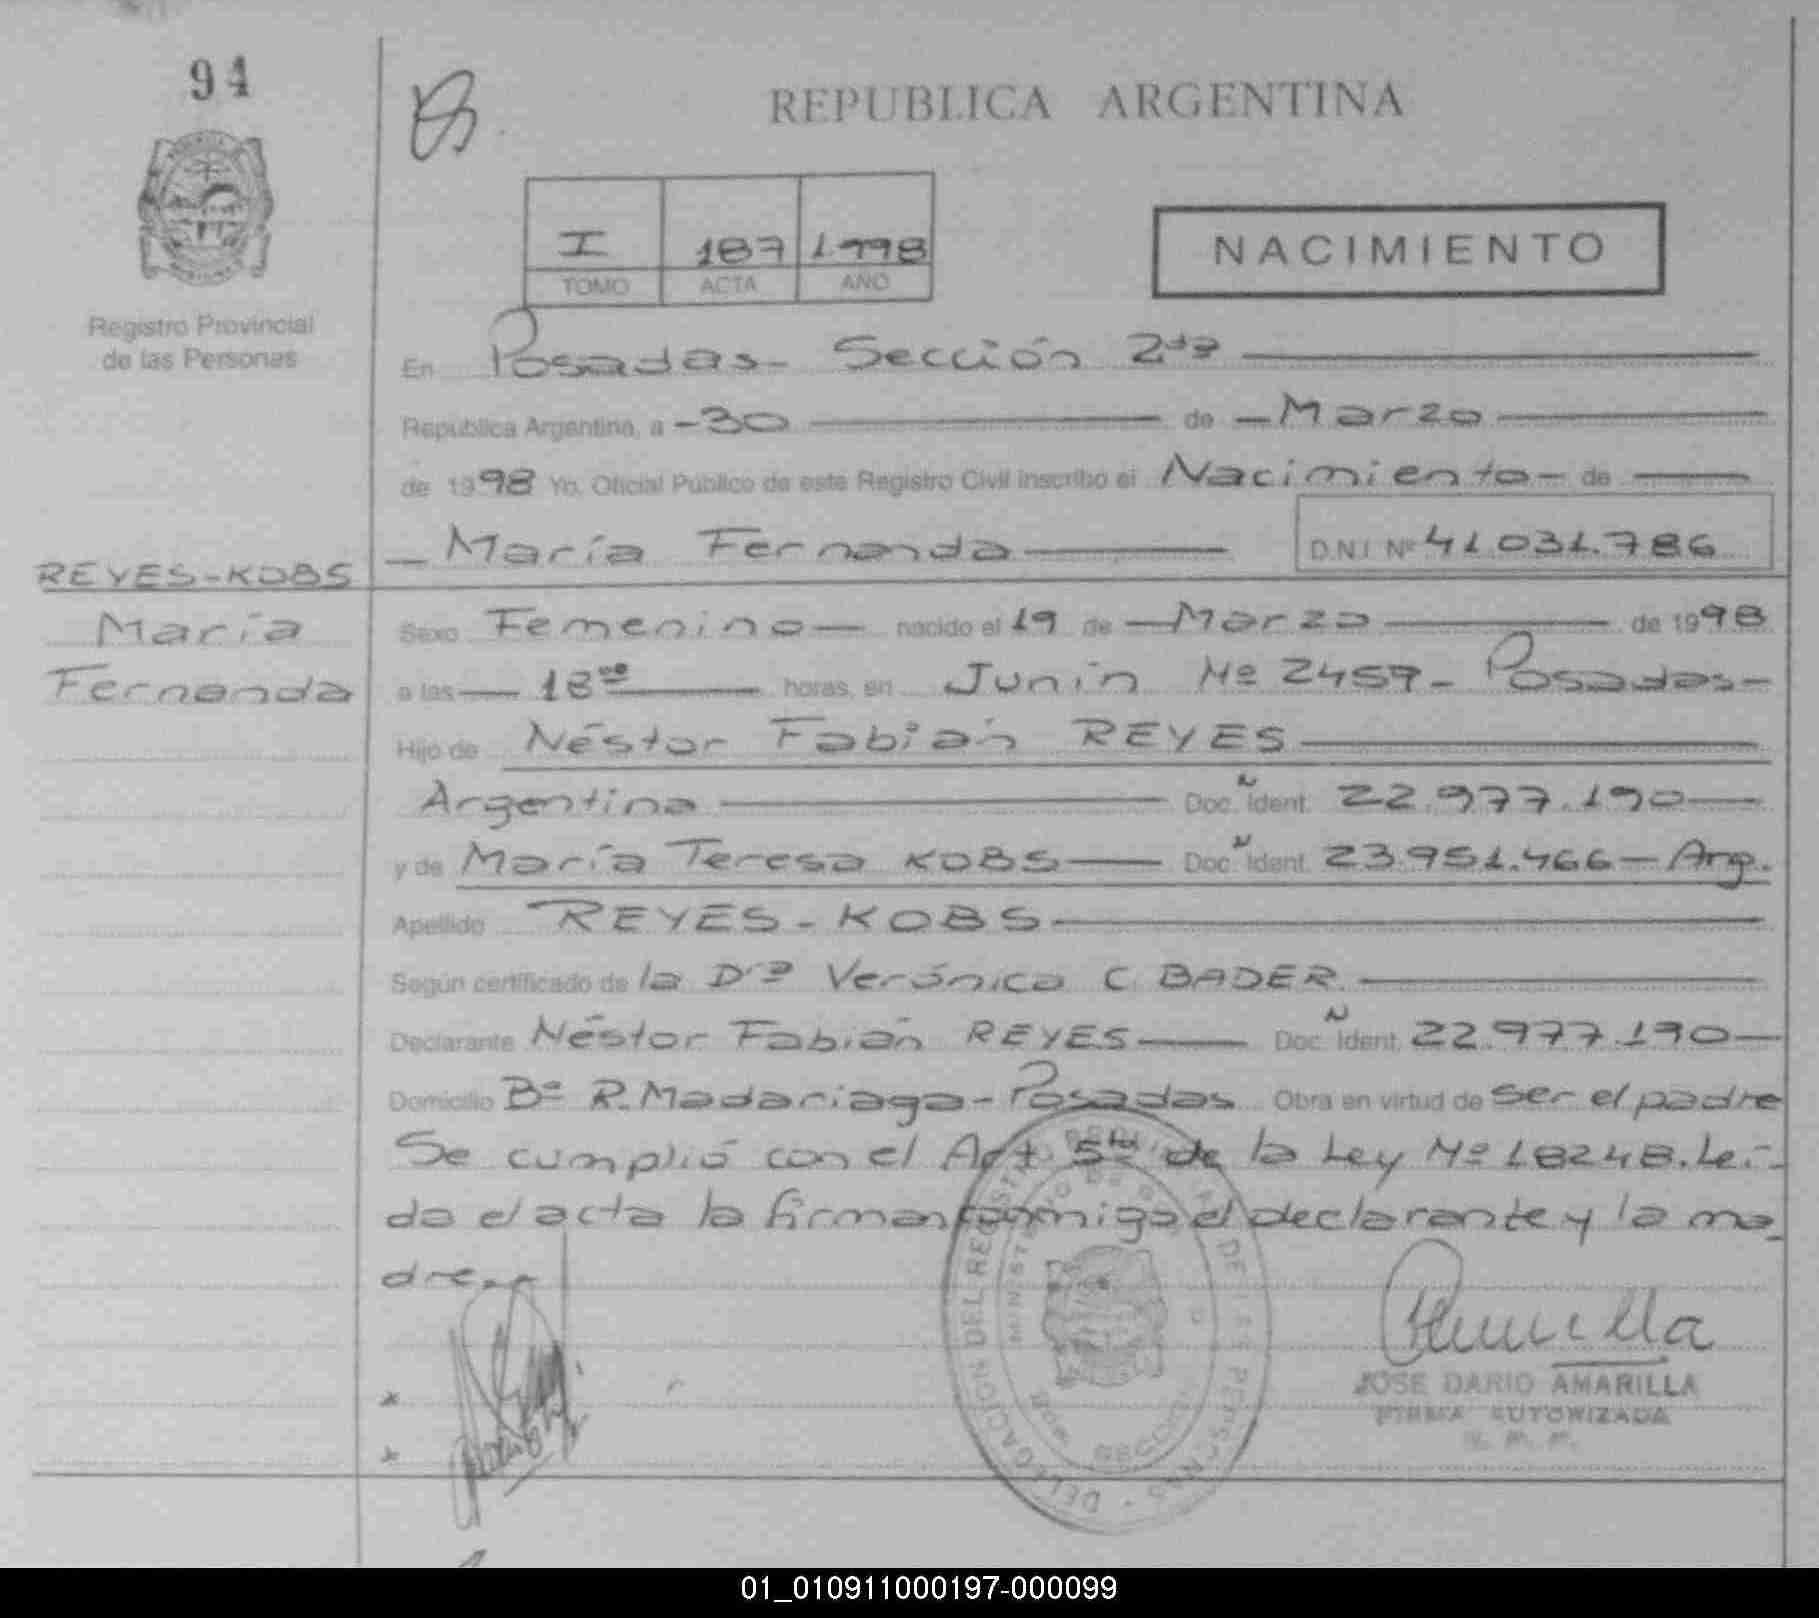 94
REPUBLICA ARGENTINA
I 187 1.998
TOMO ACTA AÑO
NACIMIENTO
Registro Provincial
de las Personas
En Posadas- Sección 2da
República Argentina, a -30 de -Marzo
de 1998 Yo, Oficial Público de este Registro Civil inscribo el Nacimiento- de
- María Fernanda D.N.I. Nº 41.031.786
REYES-KOBS
María
Fernanda
Sexo Femenino- nacido el 19 de -Marzo de 1998
a las 18 00 horas, en Junín Nº 2459- Posadas-
Hijo de Néstor Fabián REYES
Argentina Doc. Ident. 22.977.190
y de María Teresa KOBS Doc. Ident. 23.951.466- Arg.
Apellido REYES-KOBS
Según certificado de la Dra Verónica C. BADER.
Declarante Néstor Fabián REYES Doc. Ident. 22.977.190-
Domicilio Bº R. Madariaga- Posadas Obra en virtud de ser el padre
Se cumplió con el Art. 5to de la Ley Nº 18248. Leí-
da el acta la firman conmigo el declarante y la ma-
dre.-
DELEGACION DEL REGISTRO DE LAS PERSONAS
MINISTERIO DE
JOSE DARIO AMARILLA
FIRMA AUTORIZADA
01_010911000197-000099